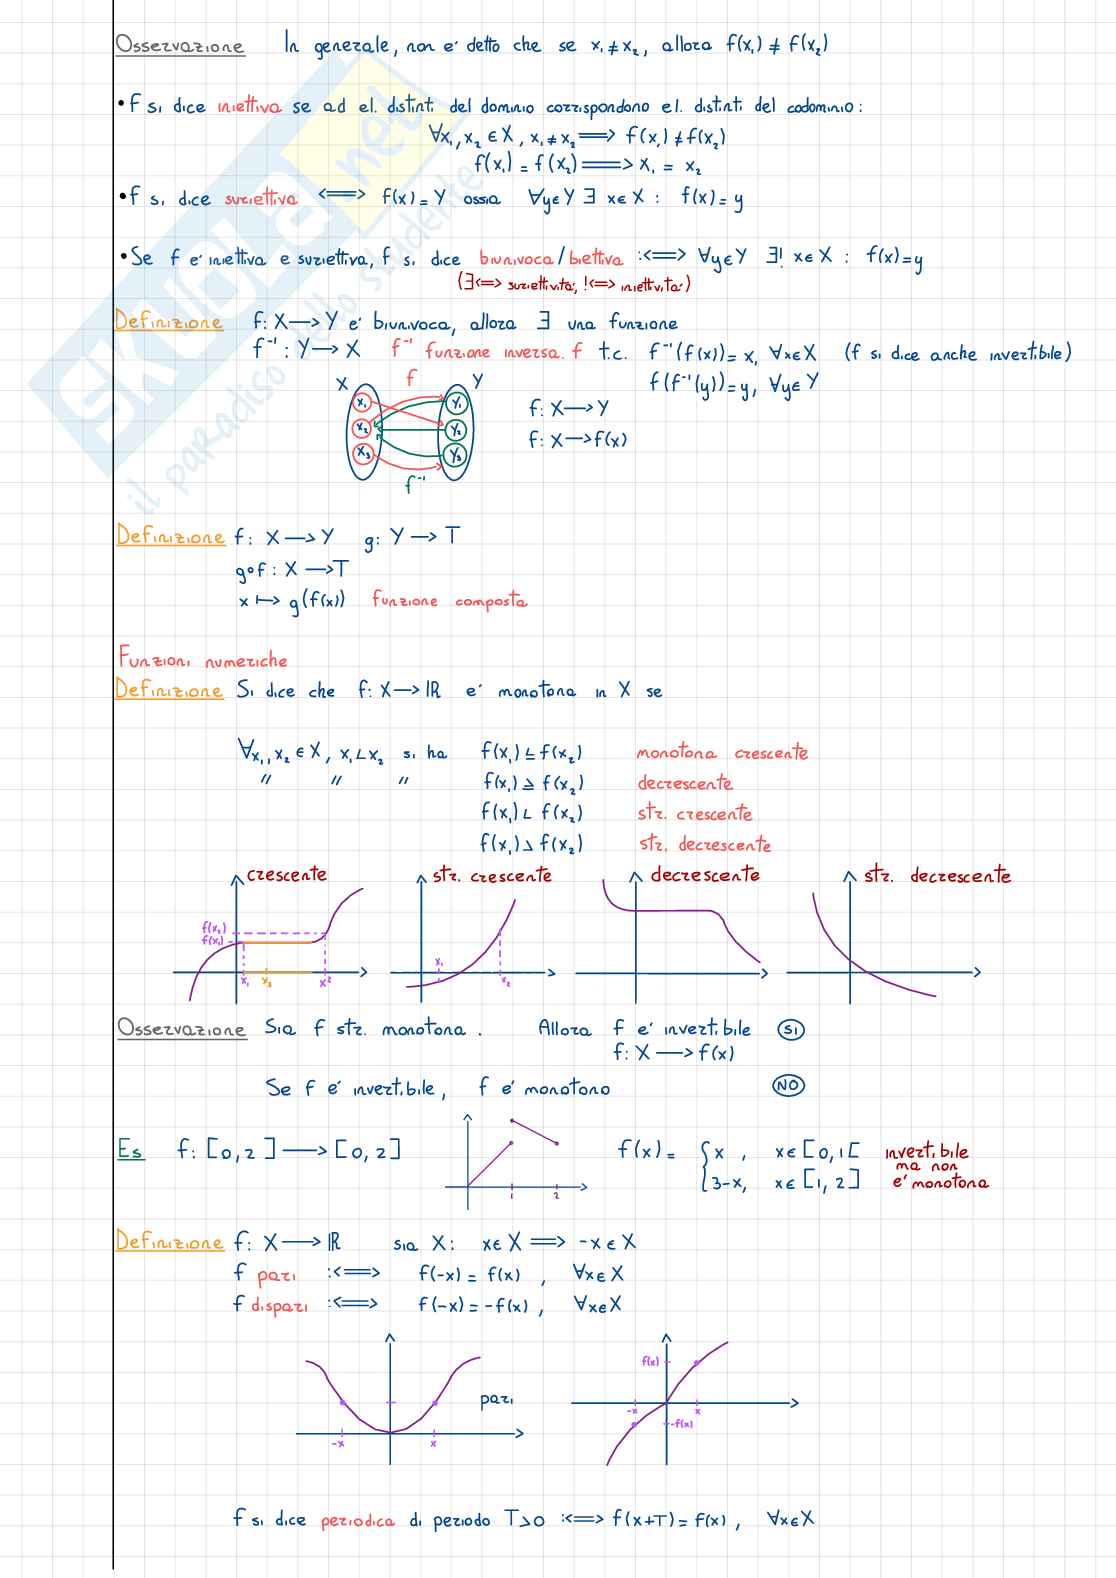 Osservazione In generale, non e' detto che se x₁ ≠ x₂, allora f(x₁) ≠ f(x₂)
• f si dice iniettiva se ad el. distinti del dominio corrispondono el. distinti del codominio:
∀x₁, x₂ ∈ X, x₁ ≠ x₂ ⟹ f(x₁) ≠ f(x₂)
f(x₁) = f(x₂) ⟹ x₁ = x₂
• f si dice suriettiva ⟺ f(x) = Y ossia ∀y∈Y ∃ x∈X : f(x) = y
• Se f e' iniettiva e suriettiva, f si dice biunivoca/biettiva :⟺ ∀y∈Y ∃! x∈X : f(x)=y
(∃⟺ suriettivita', !⟺ iniettivita')
Definizione f: X⟶Y e' biunivoca, allora ∃ una funzione
f⁻¹: Y⟶X f⁻¹ funzione inversa. f t.c. f⁻¹(f(x)) = x, ∀x∈X (f si dice anche invertibile)
f(f⁻¹(y)) = y, ∀y∈Y
X f Y
x₁ y₁
x₂ y₂
x₃ y₃
f⁻¹
f: X⟶Y
f: X⟶f(x)
Definizione f: X⟶Y g: Y⟶T
g∘f: X⟶T
x ⟼ g(f(x)) funzione composta
Funzioni numeriche
Definizione Si dice che f: X⟶ℝ e' monotona in X se
∀x₁, x₂ ∈ X, x₁ < x₂ si ha f(x₁) ≤ f(x₂) monotona crescente
" " " f(x₁) ≥ f(x₂) decrescente
f(x₁) < f(x₂) str. crescente
f(x₁) > f(x₂) str. decrescente
crescente str. crescente decrescente str. decrescente
f(x₂)
f(x₁)
x₁ x₃ x²
x₁ x₂
Osservazione Sia f str. monotona. Allora f e' invertibile SI
f: X⟶f(x)
Se f e' invertibile, f e' monotono NO
Es f: [0,2]⟶[0,2] f(x) = { x, x∈[0,1[ invertibile
3-x, x∈[1,2] ma non
e' monotona
1 2
Definizione f: X⟶ℝ sia X: x∈X ⟹ -x∈X
f pari :⟺ f(-x) = f(x), ∀x∈X
f dispari :⟺ f(-x) = -f(x), ∀x∈X
pari
-x x
f(x)
-x x
-f(x)
f si dice periodica di periodo T>0 :⟺ f(x+T) = f(x), ∀x∈X
SKUOLA.net
il paradiso dello studente